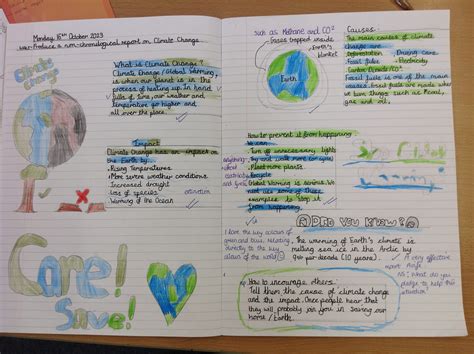 Monday 16th October 2023
WAL: Produce a non-chronological report on Climate Change
Climate
Change
What is Climate Change?
Climate Change / Global Warming,
is when our planet is in the
process of heating up. In hand
of this, our weather and
temperature go higher and
all over the place.
Impact
Climate Change has an impact on
the Earth by
• Rising Temperatures
• More severe weather conditions
• Increased draught
• Loss of species
• Warming of the Ocean
Care!
Save!
such as Methane and CO²
Gases trapped inside
Earth's
blanket
Earth
How to prevent it from happening
We can:
• Turn off unnecessary lights
• Try and walk more for you
• Plant more plants.
• Recycle
Global Warming is serious. We
must use some of these
examples to stop it
from happening.
I love the key colours of
green and blue, relating
directly to the key
colours of the world
How to encourage others:
Tell them the cause of climate change
and the impact. Once people hear that
they will probably join you in saving our
home / Earth.
Causes
The main causes of climate
change are
• Deforestation
• Driving cars
• Fossil fuels
• Electricity
• Carbon Dioxide / CO²
Fossil fuels is one of the main
causes. Fossil fuels are made when
we burn things such as coal,
gas and oil.
Stop Climate
Did You Know?
The warming of Earth's climate is
melting sea ice in the Arctic by
9% per decade (10 years).
A very effective
NS: What do you
pledge to help this
situation?